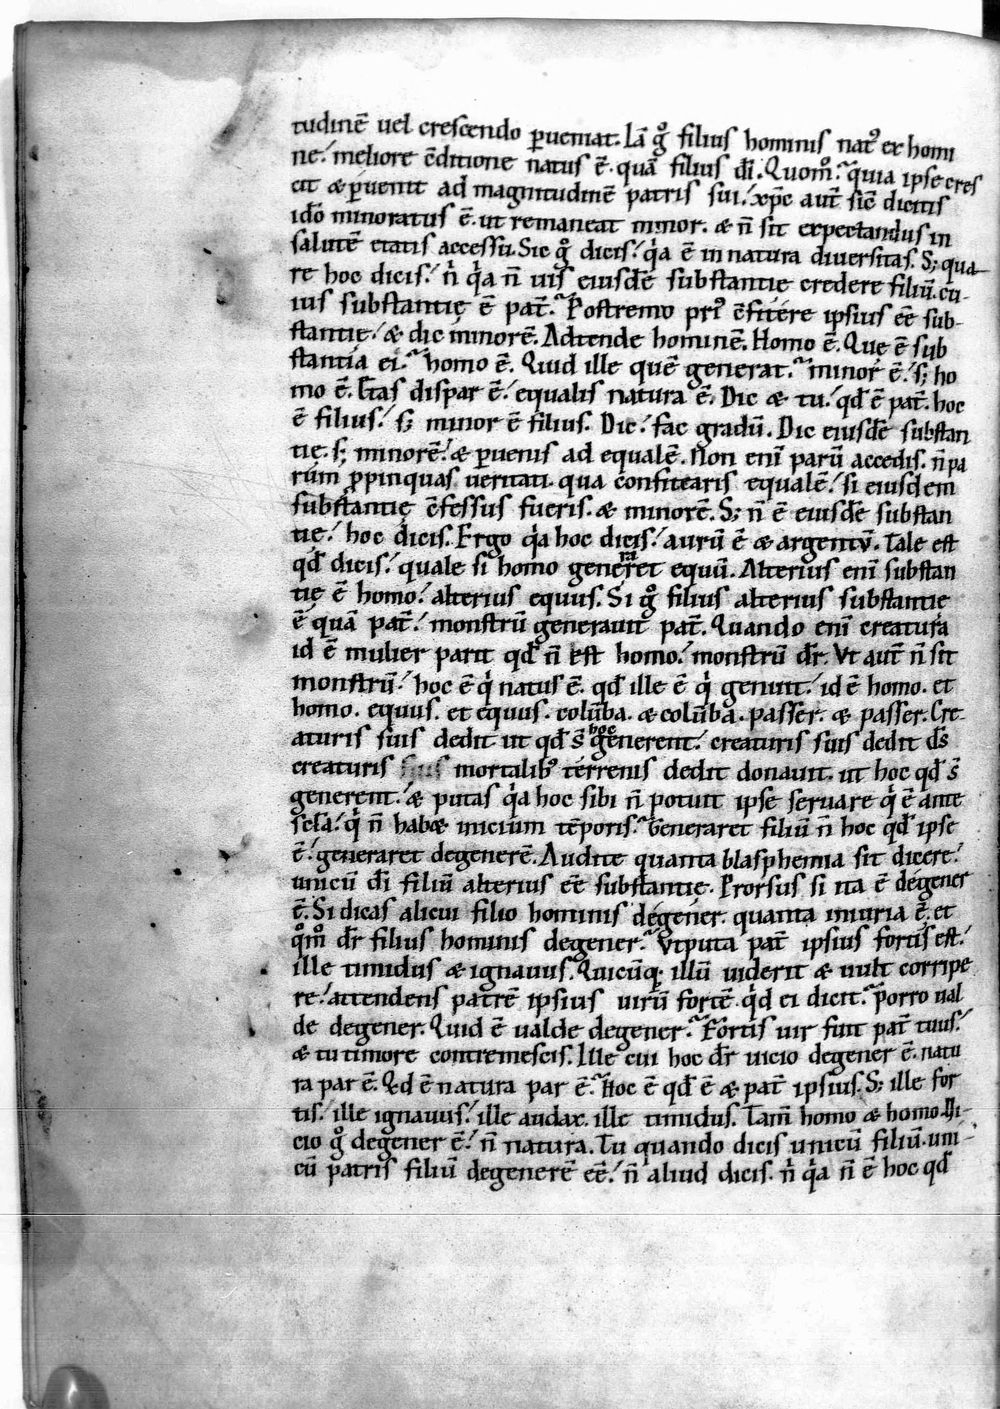 tudinē uel crescendo ꝑueniat. Iā gͦ filius hominis natꝰ ex homi
ne.᾽ meliore ↄditione natus ē. quā filius dī. Quomͦ? quia ipse cres
cit & ꝑuenit ad magnitudinē patris sui.᾽ xp̄c aut̄ sic̄ dicitis
idō minoratus ē. ut remaneat minor. & n̄ sit expectandus in
salutē etatis accessu. Sic gͦ dicis.᾽ qͥa ē in natura diuersitas. S; qua
re hoc dicis.᾽ n̄ qͥa n̄ uis eiusdē substantię credere filiū. cu-
ius substantię ē pat̄? Postremo priꝰ ↄfitere ipsius eē sub-
stantię.᾽ & dic minorē. Adtende hominē. Homo ē. Que ē sub
stantia ei? homo ē. Quid ille quē generat? minor ē.᾽ s; ho
mo ē. Etas dispar ē.᾽ equalis natura ē. Dic & tu.᾽ qđ ē pat̄. hoc
ē filius.᾽ s; minor ē filius. Dic.᾽ fac gradū. Dic eiusdē substan
tię. s; minorē.᾽ & ꝑuenis ad equalē. Non eni parū accedis. n̄ pa
rum ꝓpinquas ueritati. qua confitearis equalē.᾽ si eiusdem
substantię ↄfessus fueris. & minorē. S; n̄ ē eiusdē substan
tię.᾽ hoc dicis. Ergo qͥa hoc dicis.᾽ aurū ē & argentū. Tale est
qđ dicis.᾽ quale si homo generaret equū. Alterius eni substan
tię ē homo.᾽ alterius equus. Si gͦ filius alterius substantię
ē quā pat̄.᾽ monstrū generauit pat̄. Quando eni creatura
id ē mulier parit qđ n̄ est homo.᾽ monstrū dr̄. Vt aut̄ n̄ sit
monstrū.᾽ hoc ē qͥ natus ē. qđ ille ē qͥ genuit.᾽ id ē homo. et
homo. equus. et equus. colūba. & colūba. passer. & passer. Cre-
aturis suis dedit ut qđ s̄ hoc generent.᾽ creaturis suis dedit ds̄
creaturis suis mortalibꝰ terrenis dedit donauit. ut hoc qđ s̄
generent.᾽ & putas qͥa hoc sibi n̄ potuit ipse seruare qͥ ē ante
scła.᾽ qͥ n̄ hab& inicium tēporis? Generaret filiū n̄ hoc qđ ipse
ē.᾽ generaret degenerē. Audite quanta blasphemia sit dicere.᾽
unicū dī filiū alterius eē substantię. Prorsus si ita ē degener
ē. Si dicas alicui filio hominis degener. quanta iniuria ē. et
qͦmͦ dr̄ filius hominis degener? Vtputa pat̄ ipsius fortis est.᾽
ille timidus & ignauus. Quicūq; illū uiderit & uult corripe
re.᾽ attendens patrē ipsius uirū fortē. qͥd ei dicit? Porro ual
de degener. Quid ē ualde degener? Fortis uir fuit pat̄ tuus.᾽
& tu timore contremescis. Ille cui hoc dr̄ uicio degener ē. natu
ra par ē. Qd ē natura par ē? Hoc ē qđ ē & pat̄ ipsius. S; ille for
tis.᾽ ille ignauus.᾽ ille audax. ille timidus. Tam̄ homo & homo. Vi-
cio gͦ degener ē.᾽ n̄ natura. Tu quando dicis unicū filiū. uni-
cū patris filiū degenerē eē.᾽ n̄ aliud dicis. n̄ qͥa n̄ ē hoc qđ